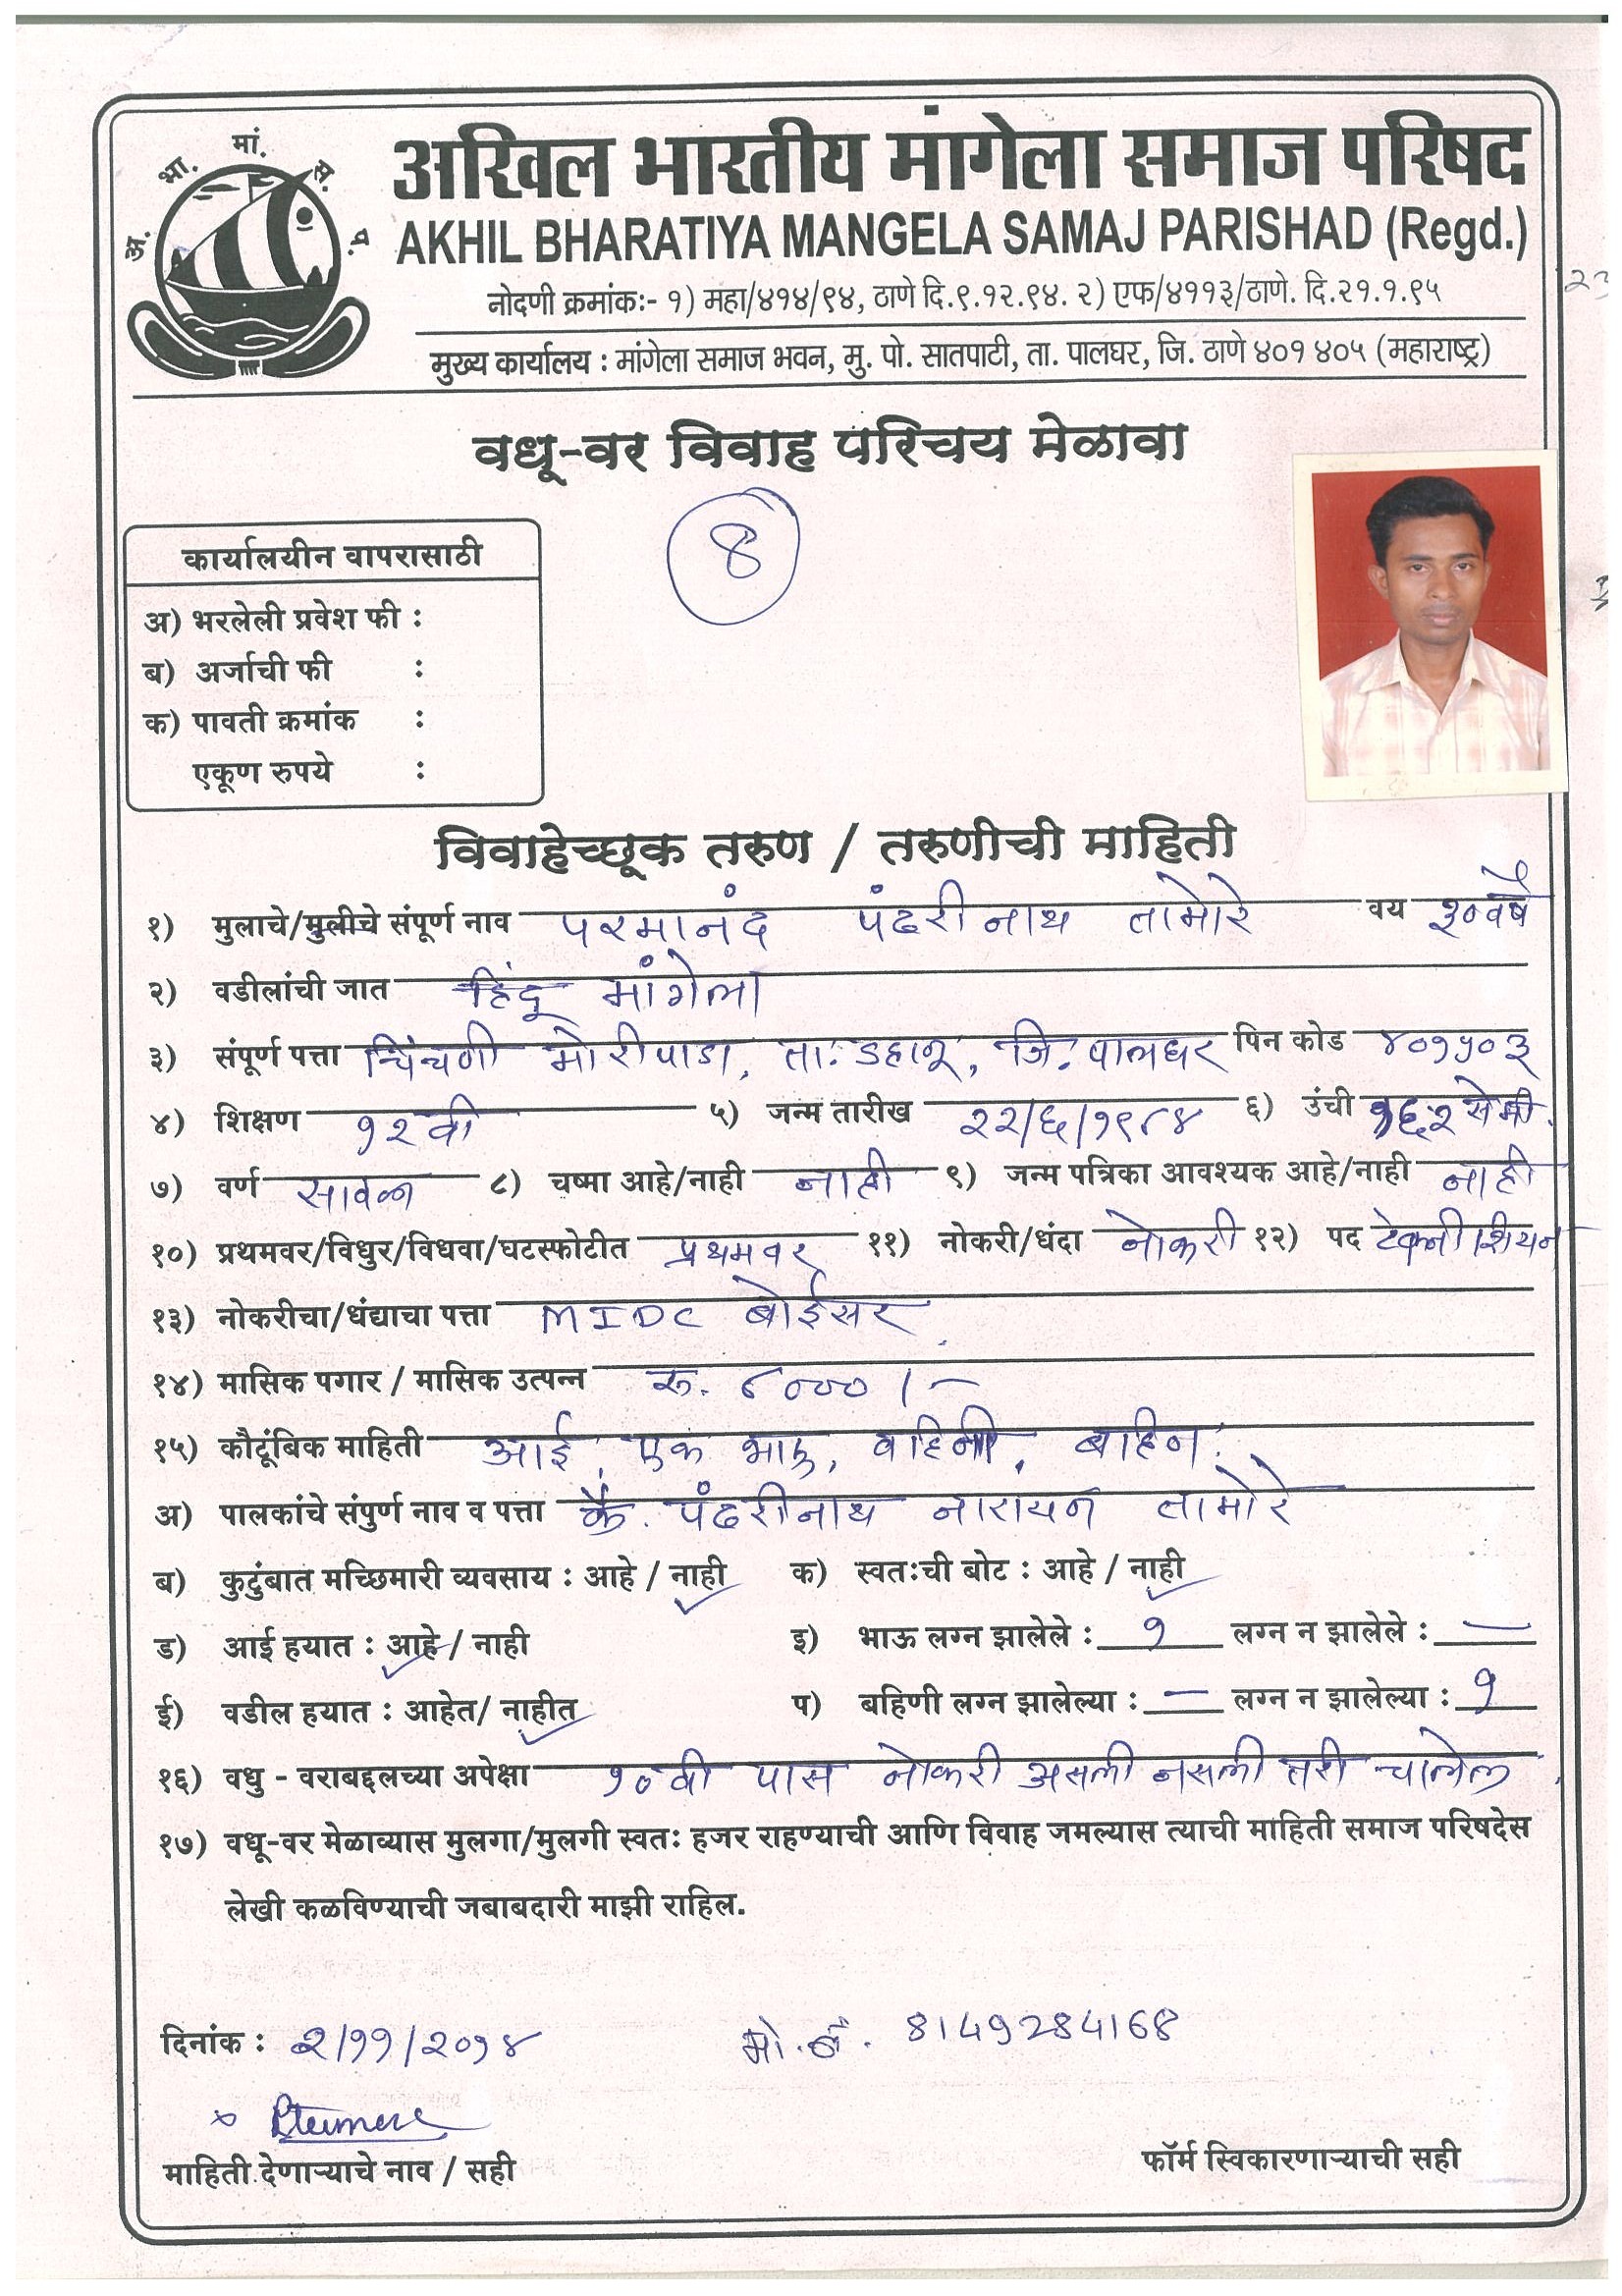 अ. भा. मां. स. प.
अखिल भारतीय मांगेला समाज परिषद
AKHIL BHARATIYA MANGELA SAMAJ PARISHAD (Regd.)
नोदणी क्रमांकः- १) महा/४१४/९४, ठाणे दि.९.१२.९४. २) एफ/४११३/ठाणे. दि.२१.१.९५
मुख्य कार्यालय : मांगेला समाज भवन, मु. पो. सातपाटी, ता. पालघर, जि. ठाणे ४०१ ४०५ (महाराष्ट्र)
वधू-वर विवाह परिचय मेळावा
8
कार्यालयीन वापरासाठी
अ) भरलेली प्रवेश फी :
ब) अर्जाची फी :
क) पावती क्रमांक :
एकूण रुपये :
विवाहेच्छूक तरुण / तरुणीची माहिती
१) मुलाचे/मुलीचे संपूर्ण नाव परमानंद पंढरीनाथ तामोरे वय ३० वर्षे
२) वडीलांची जात हिंदू मांगेला
३) संपूर्ण पत्ता चिंचणी मोरीपाडा, ता. डहाणू, जि. पालघर पिन कोड ४०१५०३
४) शिक्षण १२ वी ५) जन्म तारीख २२/६/१९८४ ६) उंची १६२ सेमी.
७) वर्ण सावळा ८) चष्मा आहे/नाही नाही ९) जन्म पत्रिका आवश्यक आहे/नाही नाही
१०) प्रथमवर/विधुर/विधवा/घटस्फोटीत प्रथमवर ११) नोकरी/धंदा नोकरी १२) पद टेक्नीशियन
१३) नोकरीचा/धंद्याचा पत्ता MIDC बोईसर
१४) मासिक पगार / मासिक उत्पन्न रु. ८००० /-
१५) कौटूंबिक माहिती आई, एक भाऊ, वहिनी, बहिन.
अ) पालकांचे संपुर्ण नाव व पत्ता कै. पंढरीनाथ नारायन तामोरे
ब) कुटुंबात मच्छिमारी व्यवसाय : आहे / नाही क) स्वतःची बोट : आहे / नाही
ड) आई हयात : आहे / नाही इ) भाऊ लग्न झालेले : १ लग्न न झालेले : —
ई) वडील हयात : आहेत/ नाहीत प) बहिणी लग्न झालेल्या : — लग्न न झालेल्या : १
१६) वधु - वराबद्दलच्या अपेक्षा १० वी पास नोकरी असली नसली तरी चालेल.
१७) वधू-वर मेळाव्यास मुलगा/मुलगी स्वतः हजर राहण्याची आणि विवाह जमल्यास त्याची माहिती समाज परिषदेस
लेखी कळविण्याची जबाबदारी माझी राहिल.
दिनांक : २/११/२०१४ मो. नं. 8149284168
माहिती देणाऱ्याचे नाव / सही फॉर्म स्विकारणाऱ्याची सही